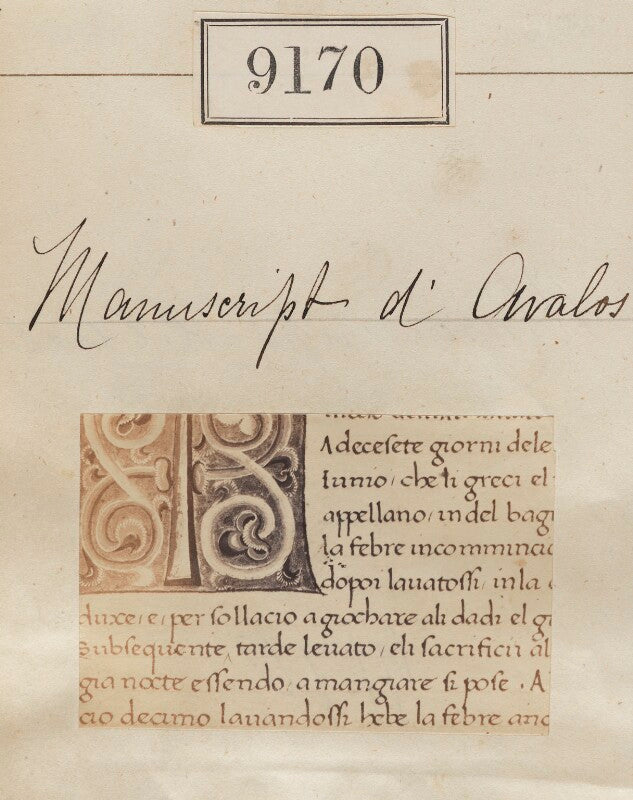 9170
Manuscript d' Avalos
Adecesete giorni dele
Iunio, che li greci el
appellano, in del bag
la febre incommincia
dopoi lavatossi, in la
duxe, e, per sollacio a giochare ali dadi el gi
Subsequente, tarde levato, eli sacrificii al
gia nocte essendo, a mangiare si pose . A
cio decimo lavandossi hebe la febre anc